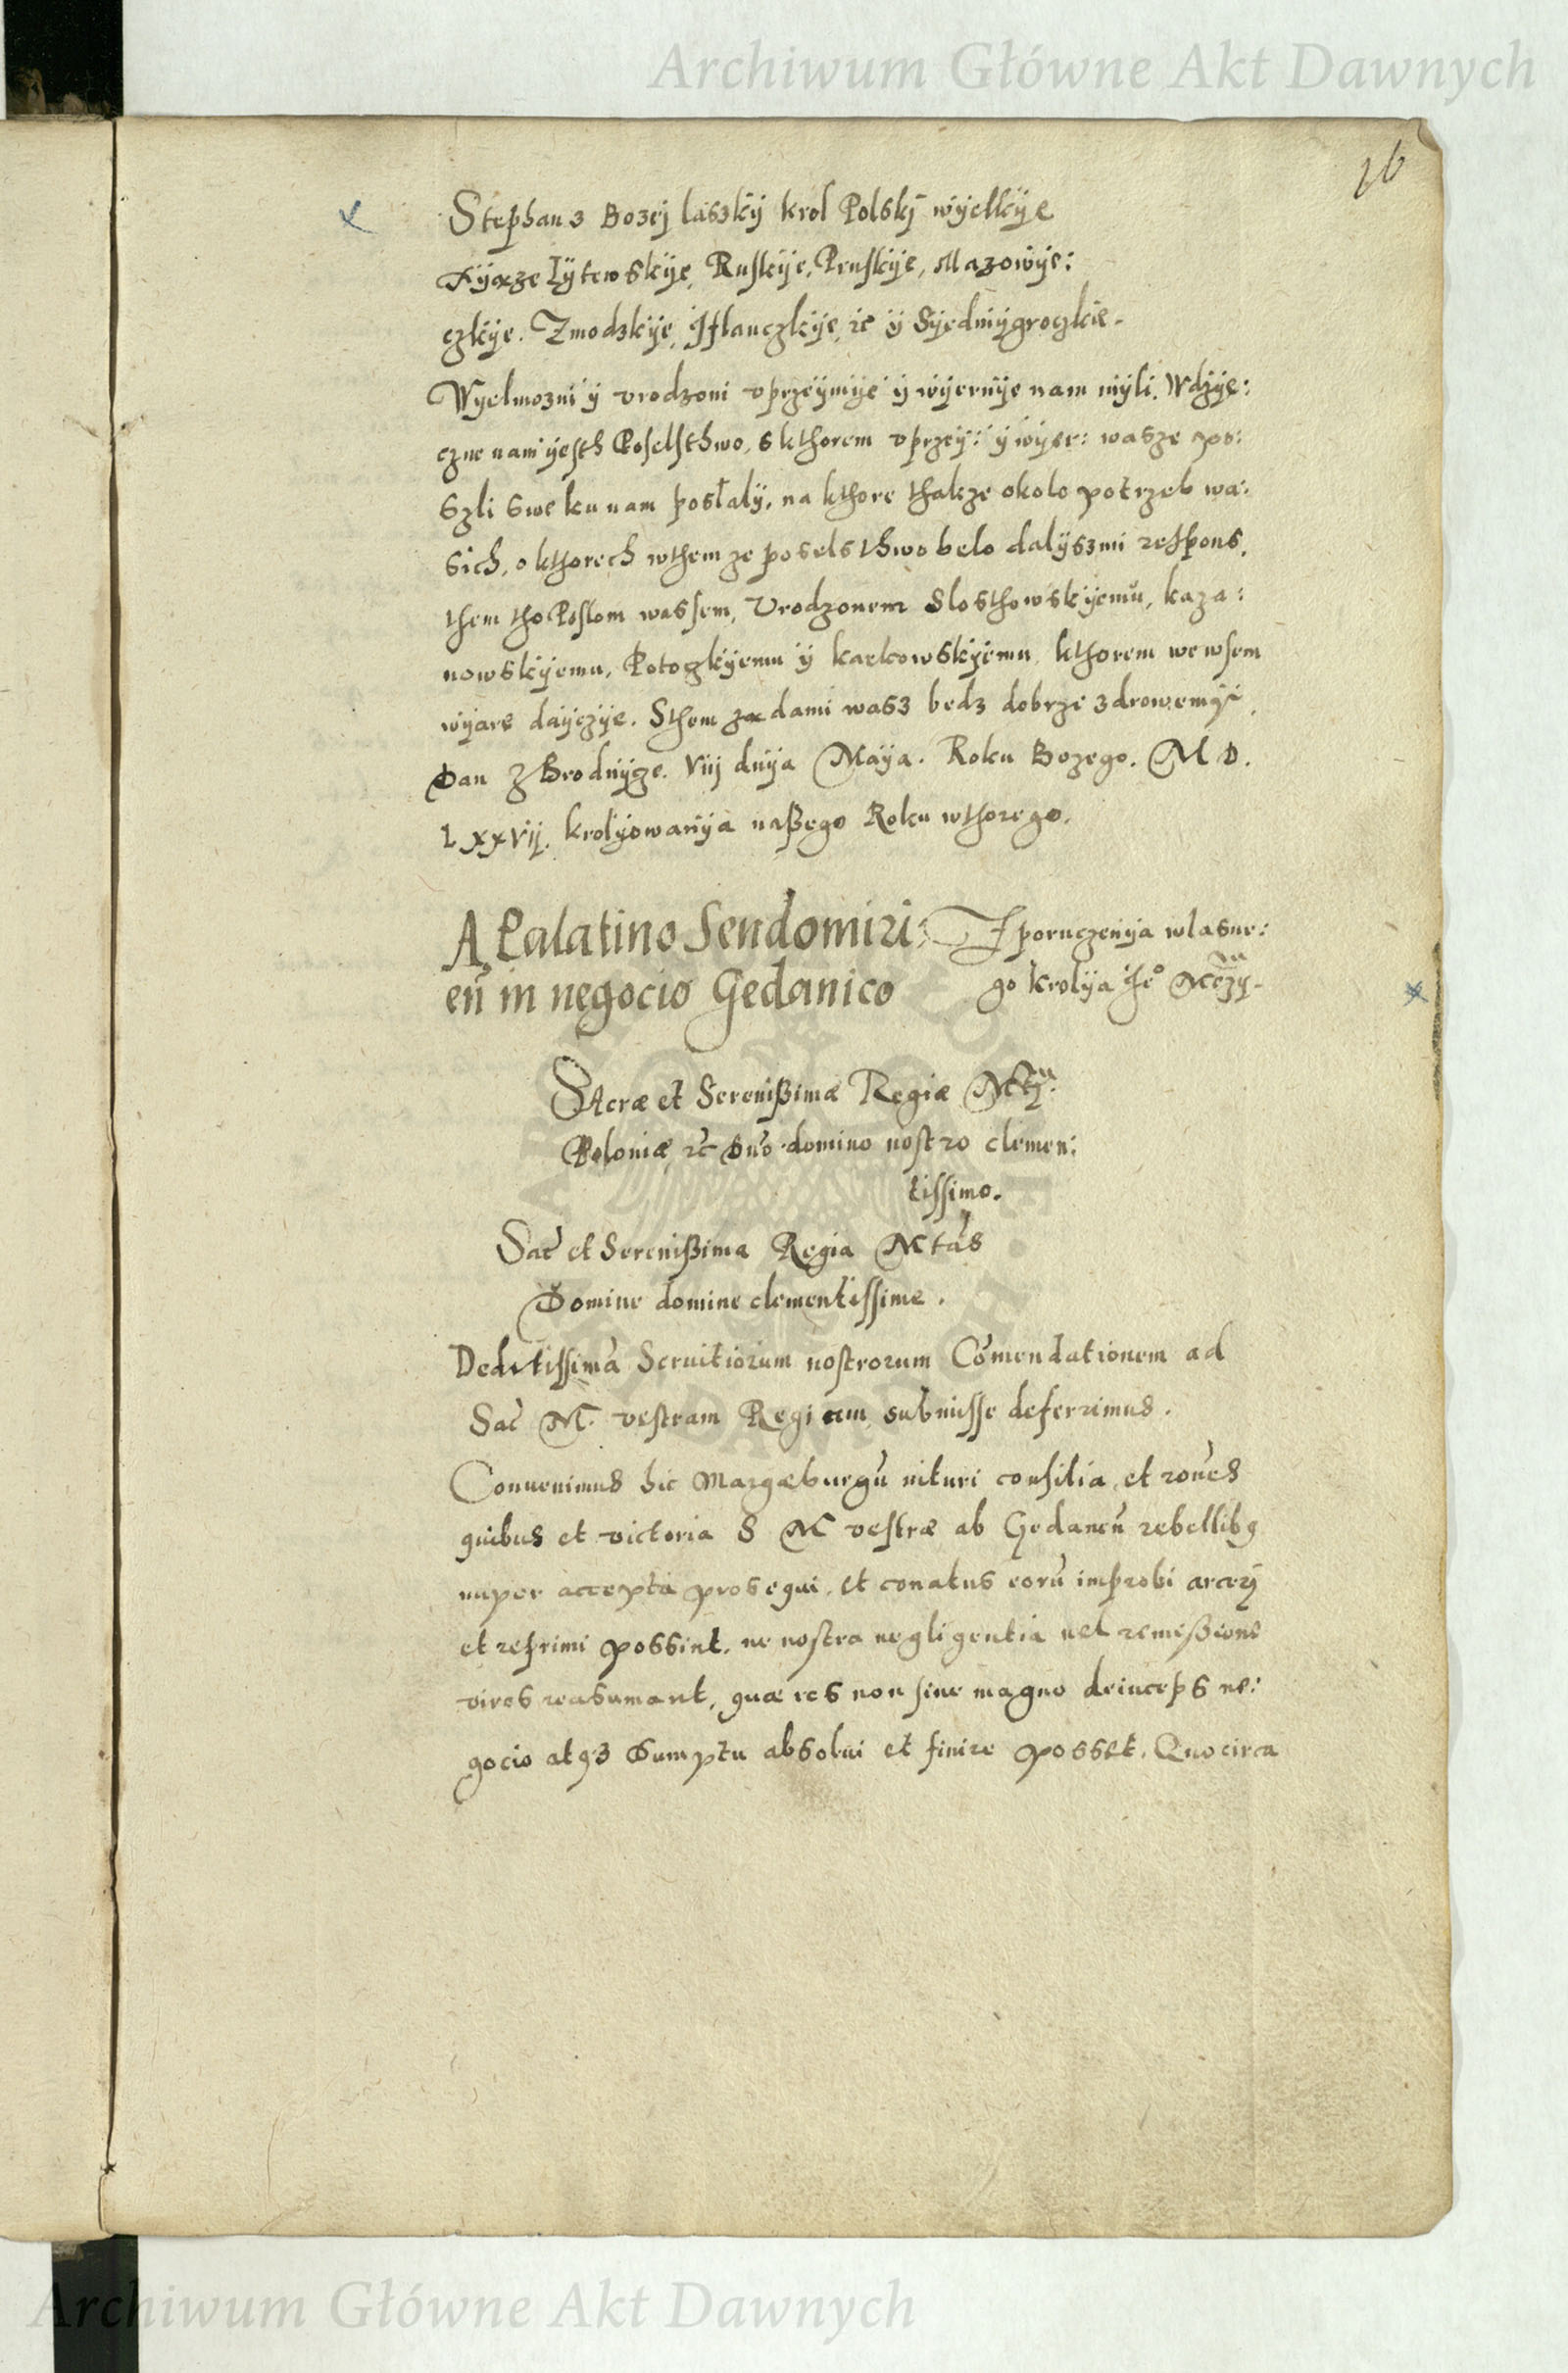 Archiwum Główne Akt Dawnych
16
Stephan z Bozej laszkÿ krol Polskj wÿelkÿe
Xÿaze Lÿtewskÿe, Ruskÿe, Pruskÿe, Mazowÿe:
czkÿe. Zmodzkÿe, Iflanczkÿe, ꝛc ÿ Sÿedmÿgroczkie.
Wÿelmozni ÿ vrodzoni vprzeÿmÿe ÿ wÿernÿe nam mÿli. Wdzÿe:
czne nam ÿesth Poselsthwo, s kthorem vprzeÿ: ÿ wÿer: wasze pos:
szli swe ku nam posłalÿ, na kthore thakze okolo potrzeb wa:
sich, o kthorech wthem ze posels thwo belo dalÿszmi respons,
them tho Posłom wassem, Vrodzonem Slosthowskÿemu, kaza:
nowskÿemu, Potoczkÿemu ÿ karkowskÿemu, kthorem we wsem
wÿare daÿczÿe. Sthem zadami wasz bedz dobrze zdrowemÿ,
Dan z Brodnÿze. Viij dnÿa Maÿa. Roku Bozego. M D.
LxxVij. krolÿowanÿa naßego Roku wthorego.
A Palatino Sendomiri:
en̄ in negocio Gedanico
Z poruczenÿa wlasne:
go krolÿa Je° Mczÿ.
SAcræ et Serenißimæ Regiæ Mtÿ.
Poloniæ, ꝛc Dno domino nostro clemen:
tissimo.
Sac et Serenißima Regia Mtas
Domine domine clementissime.
Deditissimā Seruitiorum nostrorum Cōmendationem ad
Sac M. vestram Regiam submisse deferrimus.
Conuenimus hic Margæburgū inituri consilia, et rōnes
quibus et victoria S M vestræ ab Gedanen̄ rebellibꝯ
nuper accepta prosequi, et conatus eorū improbi arcerj
et reprimi possint, ne nostra negligentia uel remißione
vires reasumant, quæ res non sine magno deinceps ne:
gocio atqꝫ sumptu absolui et finire posset. Quocirca
Archiwum Główne Akt Dawnych